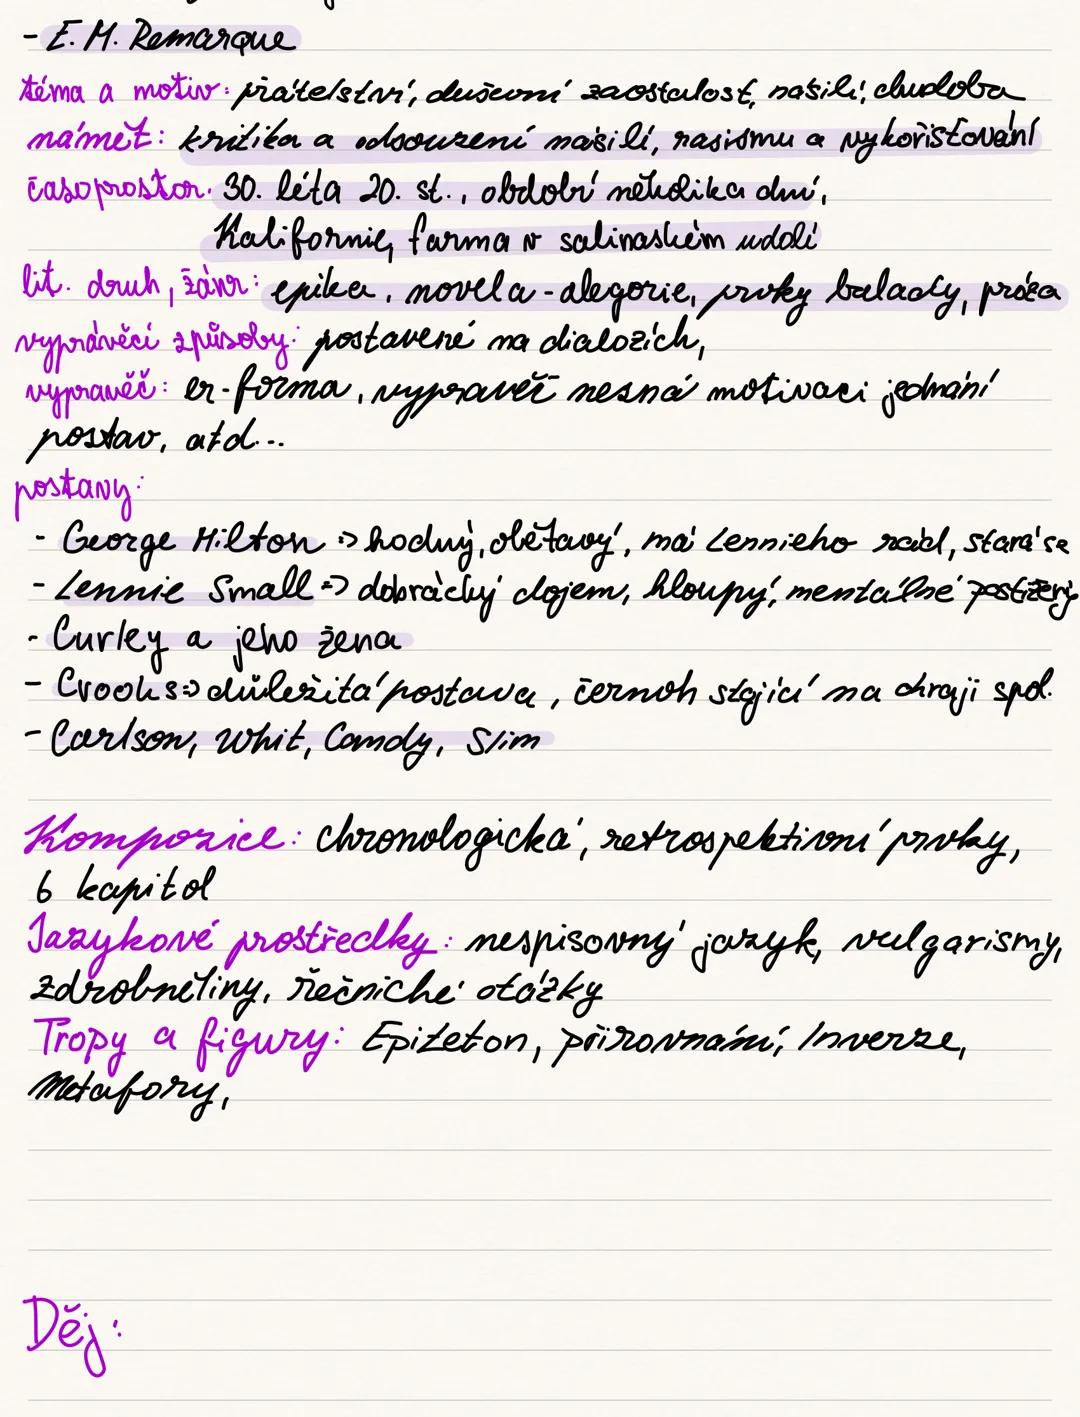 - E. M. Remarque
téma a motiv: přátelství, duševní zaostalost, násilí, chudoba
námět: kritika a odsouzení násilí, rasismu a vykořisťování
časoprostor: 30. léta 20. st., období několika dní,
Kalifornie, farma v salinaském údolí
lit. druh, žánr: epika, novela - alegorie, prvky balady, próza
vyprávěcí způsoby: postavené na dialozích,
vypravěč: er-forma, vypravěč nezná motivaci jednání
postav, atd...
postavy:
- George Milton => hodný, obětavý, má Lennieho rád, stará se
- Lennie Small => dobrácký dojem, hloupý, mentálně postižený
- Curley a jeho žena
- Crooks => důležitá postava, černoh stojící na okraji spol.
- Carlson, Whit, Candy, Slim
Kompozice: chronologická, retrospektivní prvky,
6 kapitol
Jazykové prostředky: nespisovný jazyk, vulgarismy,
zdrobněliny, řečniché otázky
Tropy a figury: Epiteton, přirovnání, Inverze,
Metafory,
Děj: